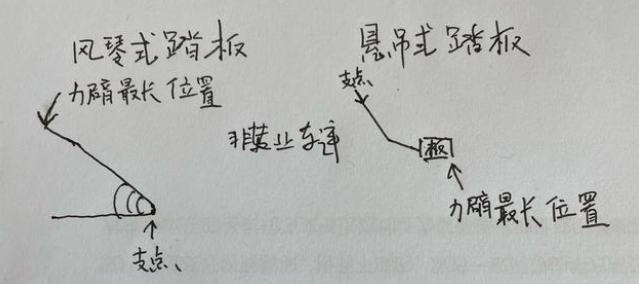 风琴式踏板
力臂最长位置
支点、
非营业车运
悬吊式踏板
支点、
板
力臂最长位置